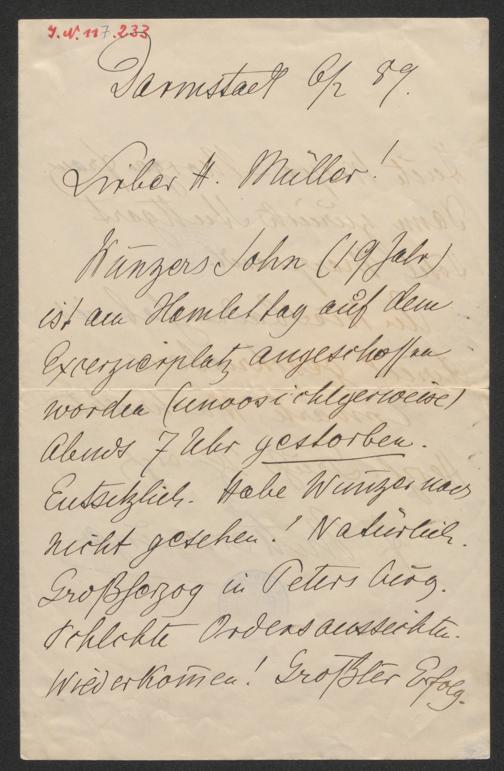 J.N. 117.233
Darmstadt 6/2 89.
Lieber H. Müller!
Wünzers Sohn (19 Jahr)
ist am Hamlettag auf dem
Exerzierplatz angeschossen
worden (unvorsichtigerweise)
Abends 7 Uhr gestorben.
Entsetzlich. Habe Wünzer noch
nicht gesehen! Natürlich.
Großherzog in Petersburg.
Schlechte Ordensaussichten.
Wiederkom̅en! Größter Erfolg.